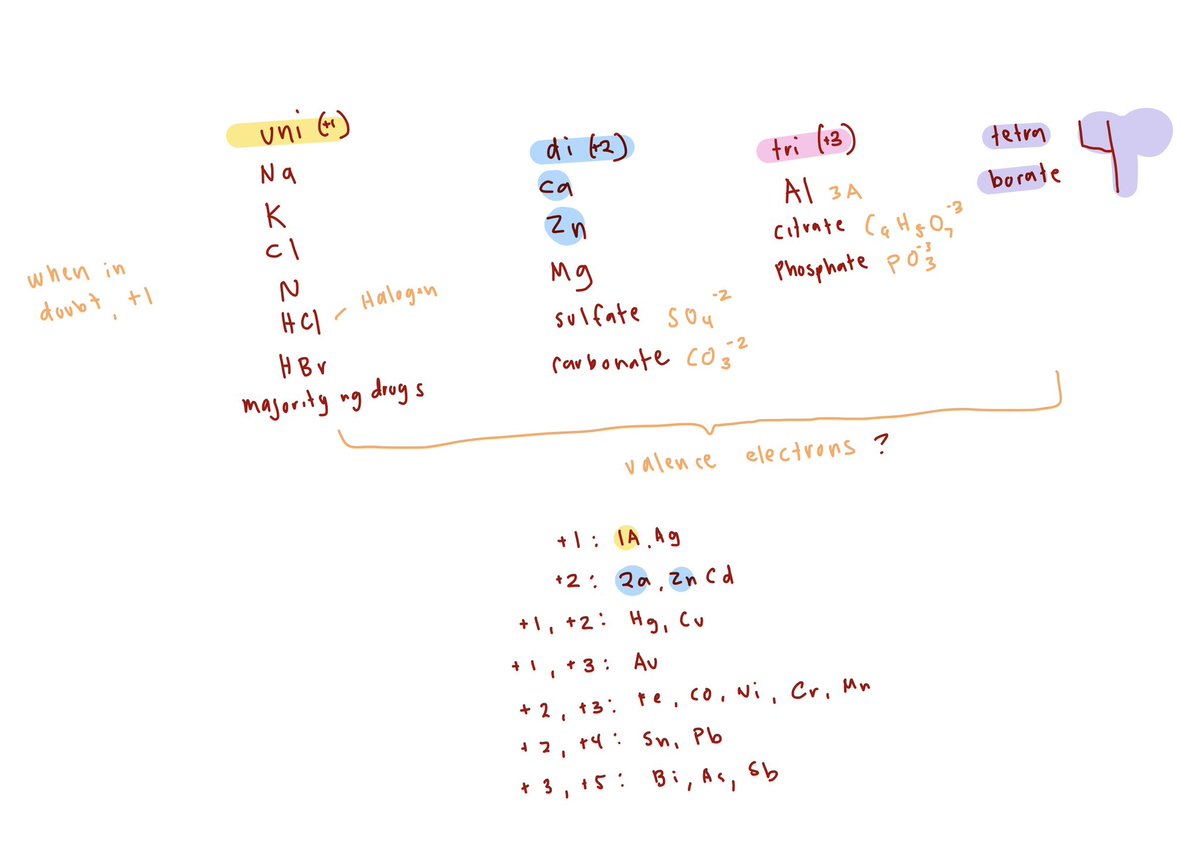 uni (+1)
Na
K
Cl
N
HCl
Halogen
HBr
majority ng drugs
when in
doubt, +1
di (+2)
Ca
Zn
Mg
sulfate SO4-2
carbonate CO3-2
tri (+3)
Al 3A
citrate C6H5O7-3
Phosphate PO3-3
tetra
borate
4
valence electrons ?
+1: 1A, Ag
+2: 2a, Zn Cd
+1, +2: Hg, Cu
+1, +3: Au
+2, +3: Fe, CO, Ni, Cr, Mn
+2, +4: Sn, Pb
+3, +5: Bi, As, Sb